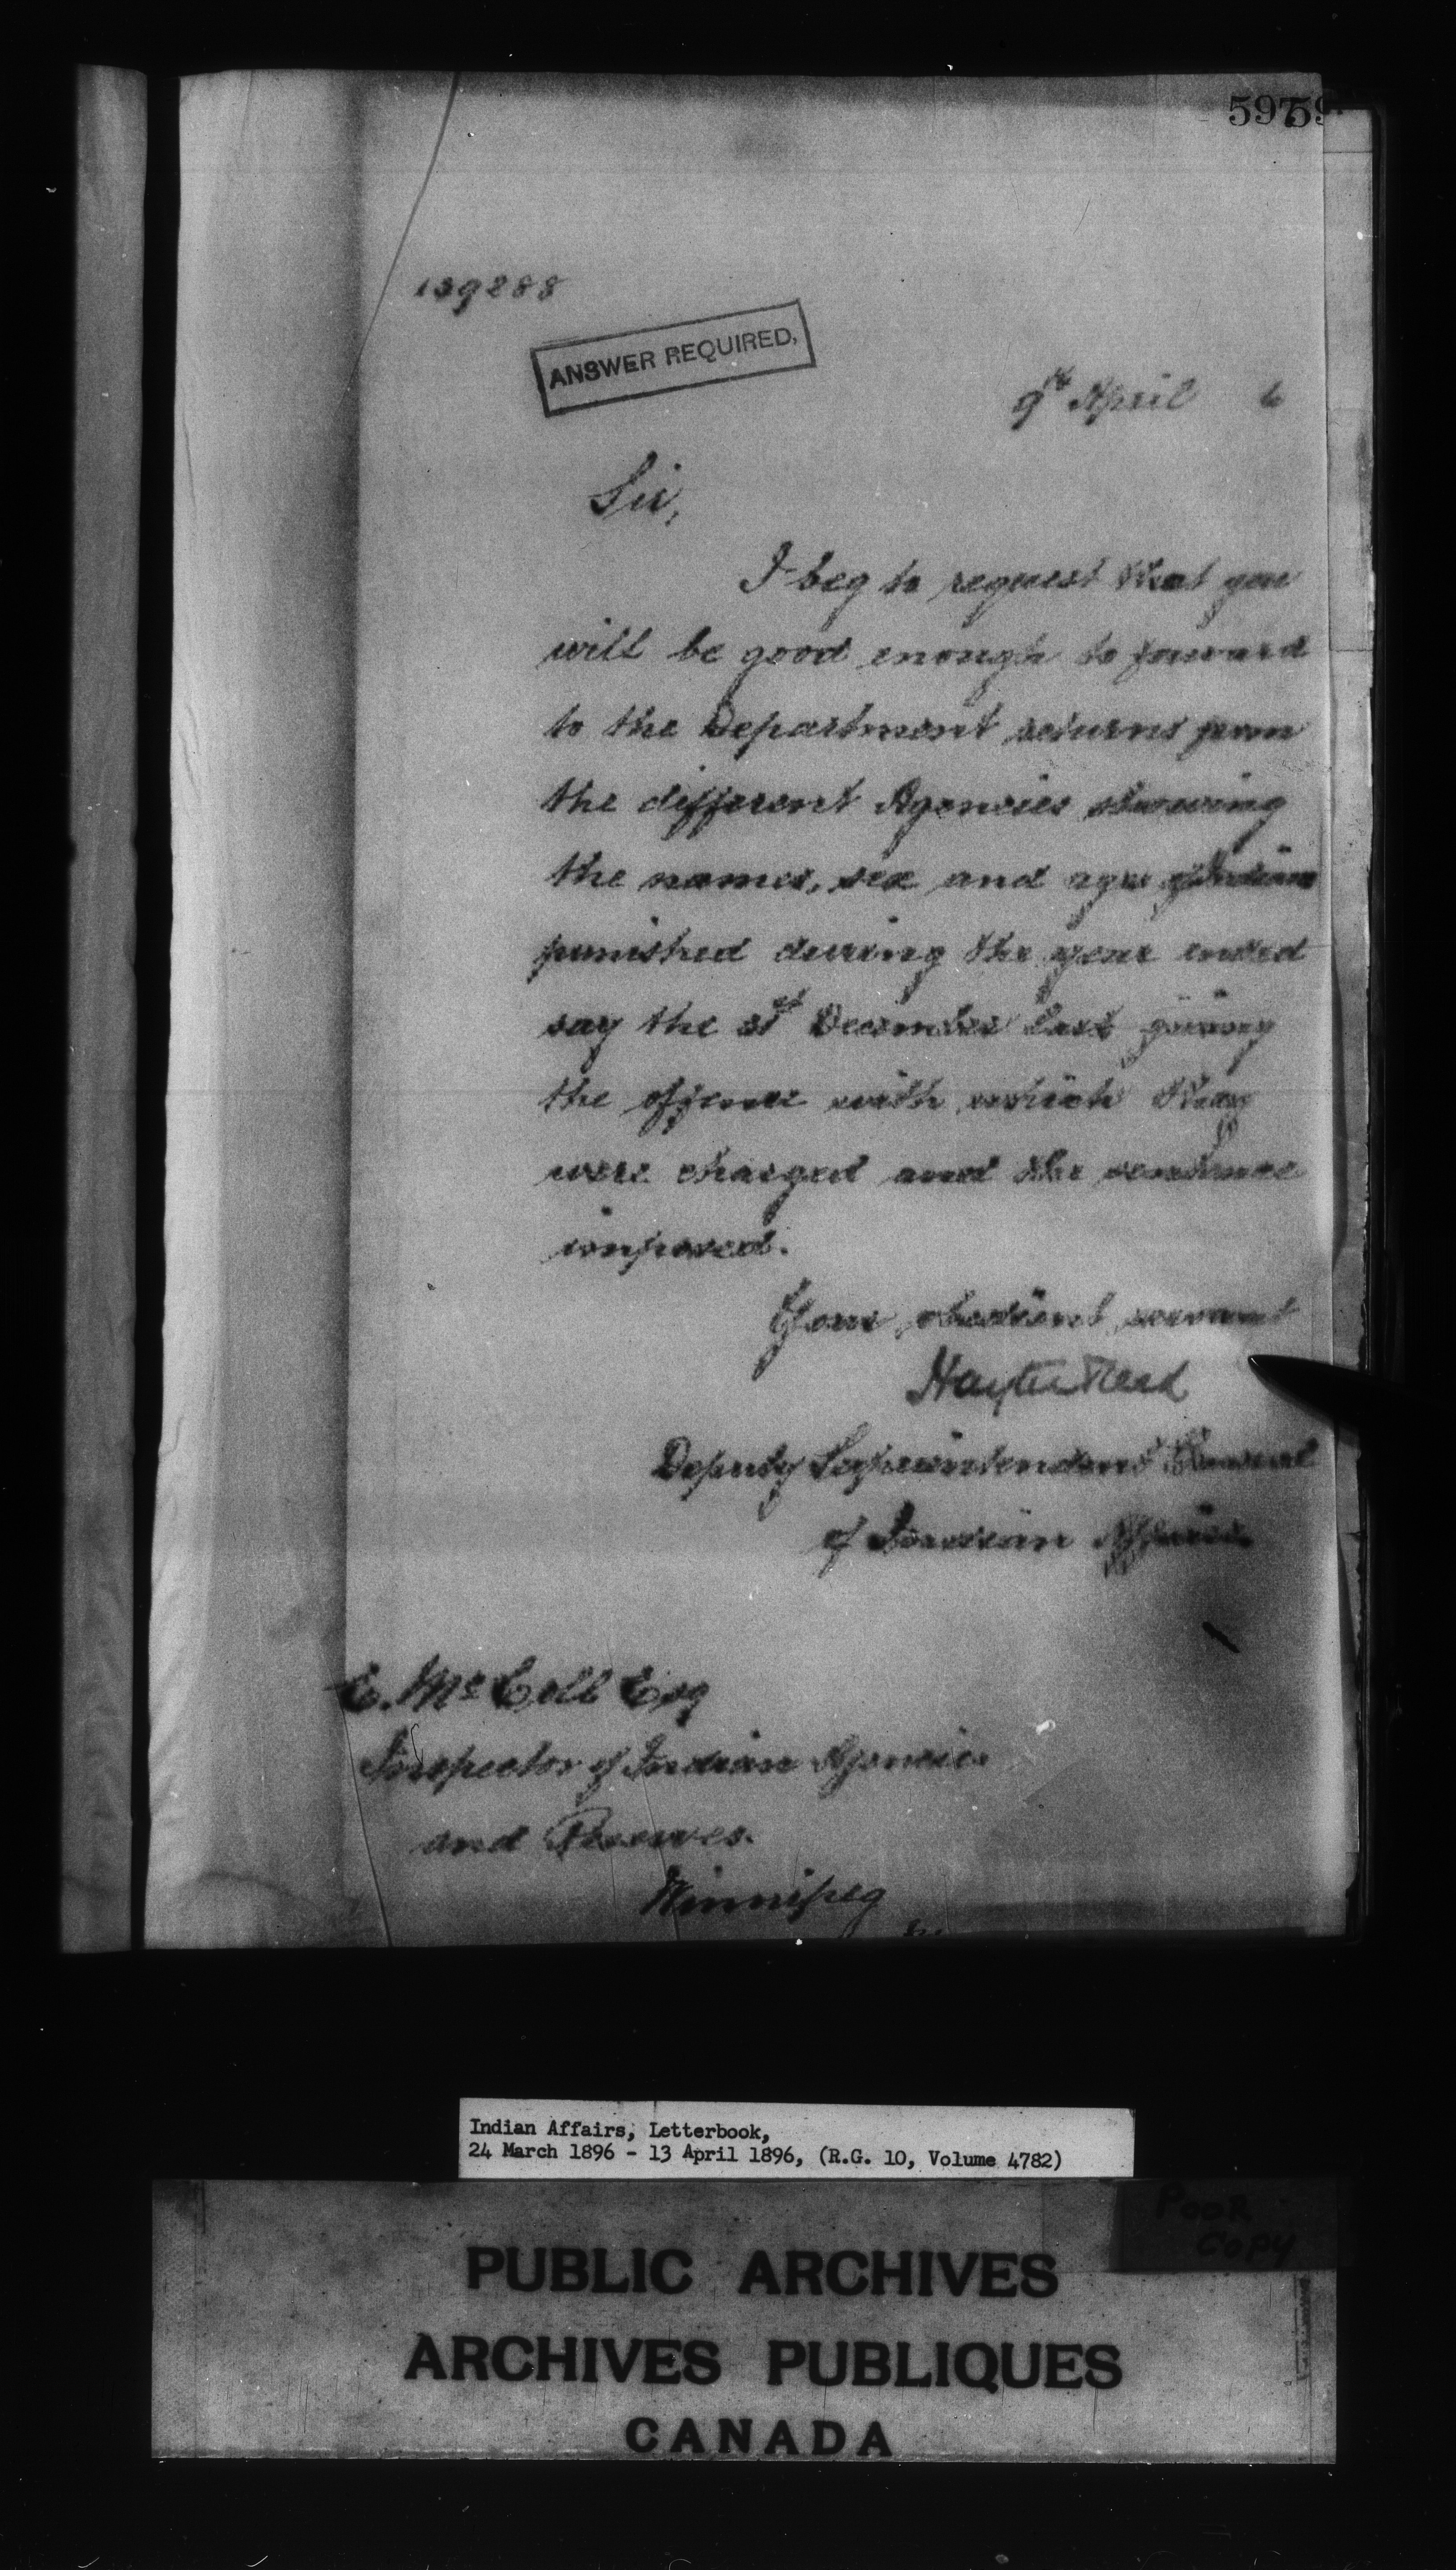 597
139288
ANSWER REQUIRED,
9th April 6
Sir,
I beg to request that you
will be good enough to forward
to the Department returns from
the different Agencies showing
the names, sex and ages of Indians
punished during the year ended
say the 31st December last giving
the offence with which they
were charged and the sentence
imposed.
Your obedient servant
Hayter Reed
Deputy Superintendent General
of Indian Affairs
E. McColl Esq
Inspector of Indian Agencies
and Reserves.
Winnipeg
Indian Affairs, Letterbook,
24 March 1896 - 13 April 1896, (R.G. 10, Volume 4782)
POOR
COPY
PUBLIC ARCHIVES
ARCHIVES PUBLIQUES
CANADA